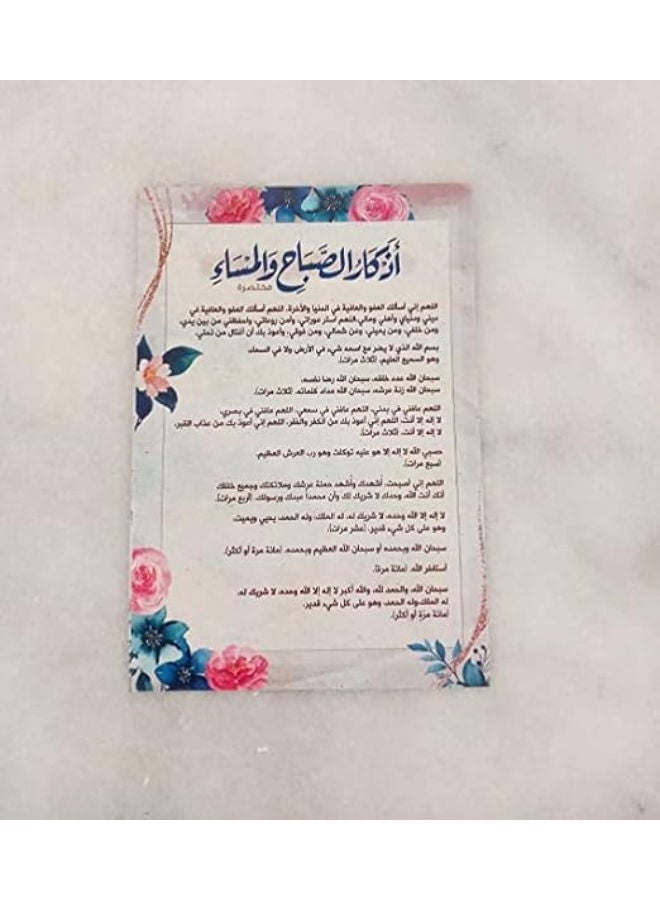 أذكار الصباح والمساء
مختصرة
اللهم إني أسألك العفو والعافية في الدنيا والآخرة، اللهم أسألك العفو والعافية في
ديني ودنياي وأهلي ومالي، اللهم أستر عوراتي، وآمن روعاتي، واحفظني من بين يدي،
ومن خلفي، ومن يميني، ومن شمالي، ومن فوقي، وأعوذ بك أن أغتال من تحتي.
بسم الله الذي لا يضر مع اسمه شيء في الأرض ولا في السماء،
وهو السميع العليم. (ثلاث مرات).
سبحان الله عدد خلقه، سبحان الله رضا نفسه،
سبحان الله زنة عرشه، سبحان الله مداد كلماته. (ثلاث مرات).
اللهم عافني في بدني، اللهم عافني في سمعي، اللهم عافني في بصري،
لا إله إلا أنت، اللهم إني أعوذ بك من الكفر والفقر، اللهم إني أعوذ بك من عذاب القبر،
لا إله إلا أنت. (ثلاث مرات).
حسبي الله لا إله إلا هو عليه توكلت وهو رب العرش العظيم.
(سبع مرات).
اللهم إني أصبحت، أشهدك وأشهد حملة عرشك وملائكتك وجميع خلقك
أنك أنت الله، وحدك لا شريك لك وأن محمدا عبدك ورسولك. (أربع مرات).
لا إله إلا الله وحده، لا شريك له، له الملك، وله الحمد، يحيي ويميت،
وهو على كل شيء قدير. (عشر مرات).
سبحان الله وبحمده أو سبحان الله العظيم وبحمده. (مائة مرة أو أكثر).
أستغفر الله. (مائة مرة).
سبحان الله، والحمد لله، والله أكبر لا إله إلا الله وحده، لا شريك له،
له الملك، وله الحمد، وهو على كل شيء قدير.
(مائة مرّة أو أكثر).